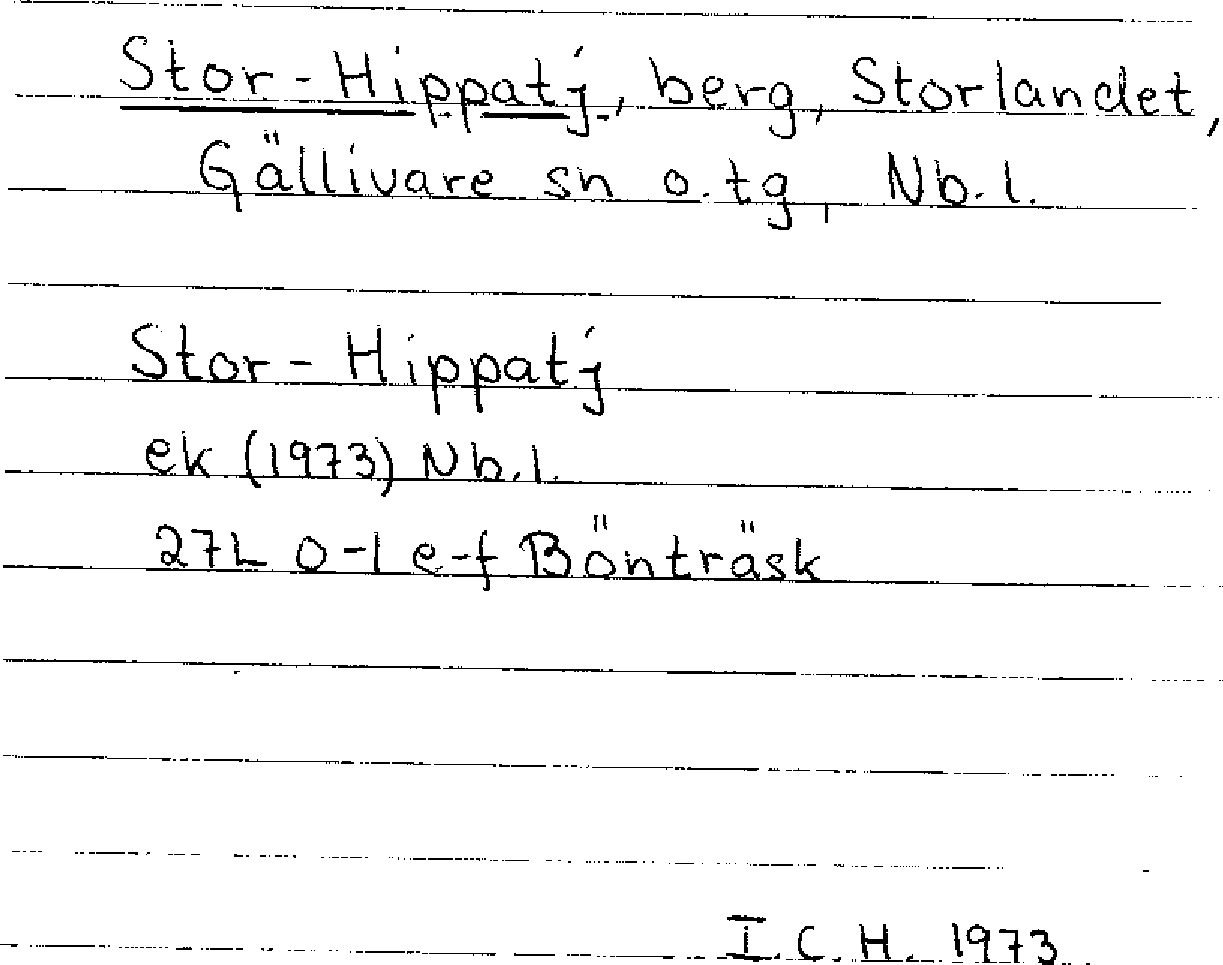 Stor-Hippatj, berg, Storlandet,
Gällivare sn o. tg, Nb. l.
Stor-Hippatj
ek (1973) Nb. l.
27L 0-1 e-f Bönträsk
I. C. H. 1973